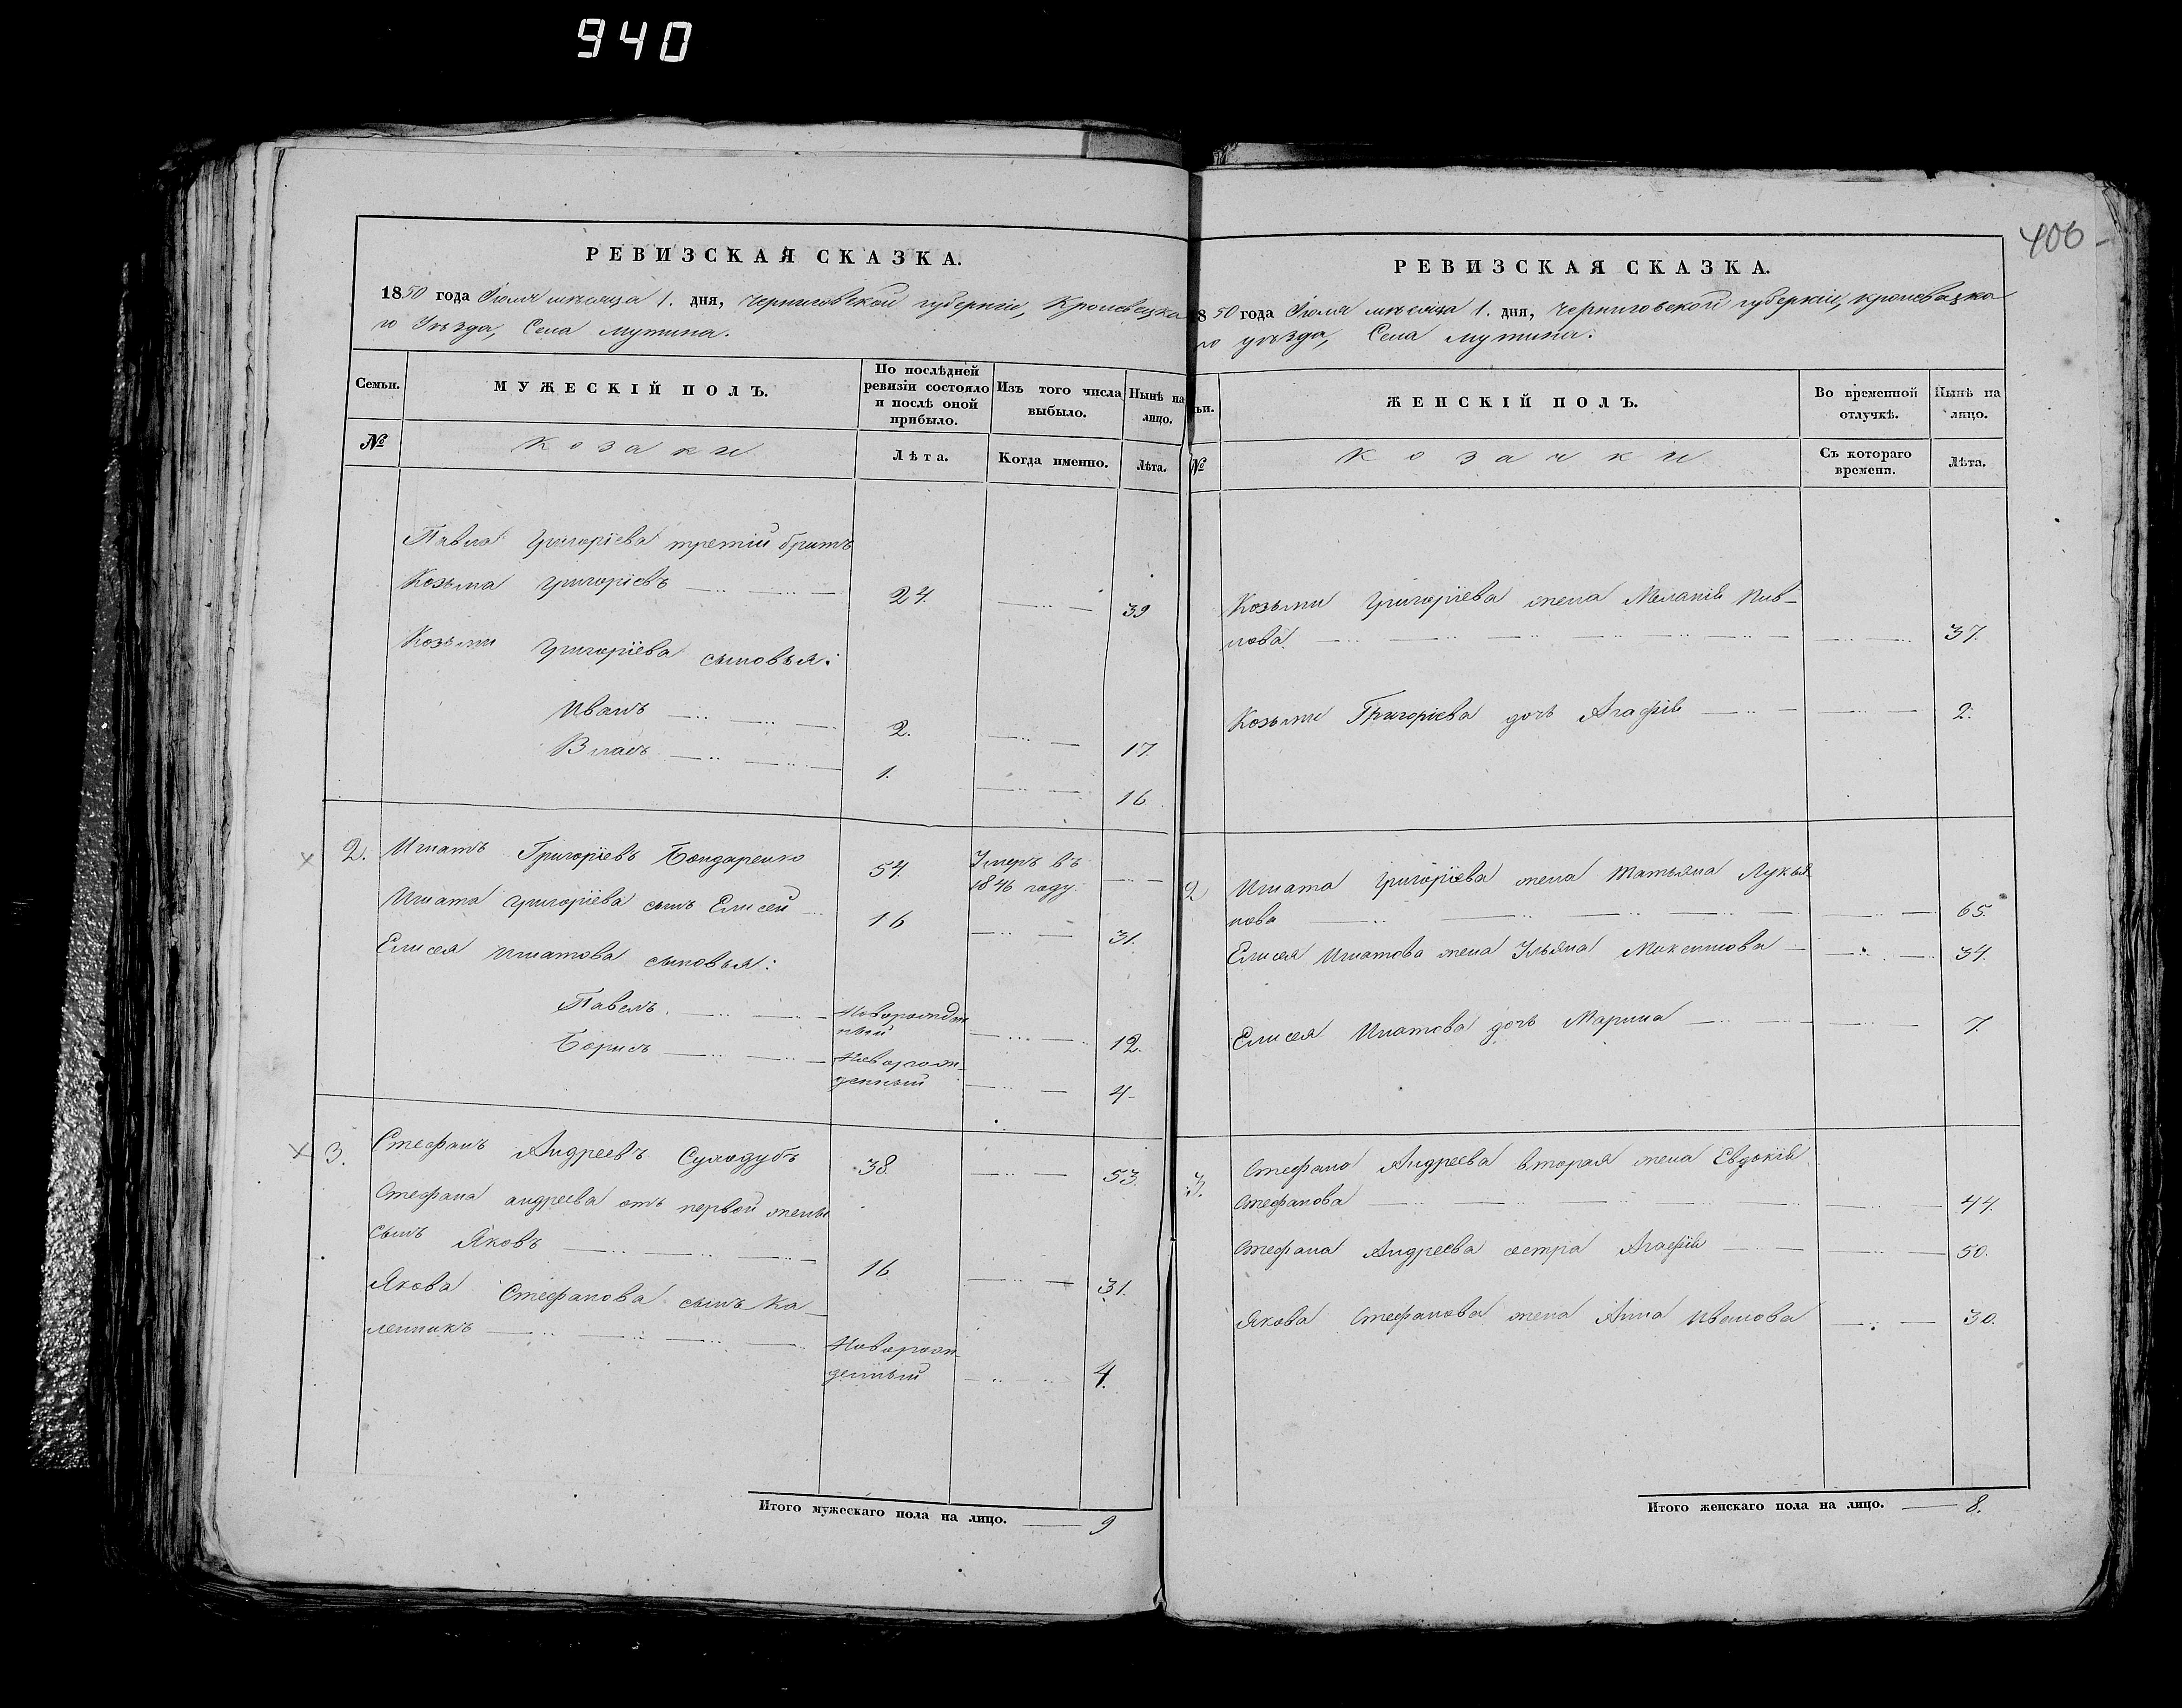 940
РЕВИЗСКАЯ СКАЗКА.
1850 года Іюля мѣсяца 1. дня, Черниговской губерніи, Кролевецка
го Уѣзда, Села Мутина.
Семьи.
МУЖЕСКІЙ ПОЛЪ.
По послѣдней ревизіи состояло и послѣ оной прибыло.
Изъ того числа выбыло.
Нынѣ на лицо.
№
Козаки
Лѣта.
Когда именно.
Лѣта.
Павла Григоріева третій братъ
Козьма Григоріевъ 24. 39
Козьмы Григоріева сыновья:
Иванъ 2. 17.
Власъ 1. 16
2. Игнатъ Григоріевъ Бондаренко 54. Умеръ въ 1846 году.
Игната Григоріева сынъ Елисей 16 31.
Елисея Игнатова сыновья:
Павелъ Новорожденный 12.
Борисъ Новорожденный 4
3. Стефанъ Андреевъ Суходубъ 38 53.
Стефана Андреева отъ первой жены
сынъ Яковъ 16 31.
Якова Стефанова сынъ Ка-
леникъ Новорожденный 4.
Итого мужескаго пола на лицо. 9
406
РЕВИЗСКАЯ СКАЗКА.
1850 года Іюля мѣсяца 1. дня, Черниговской губерніи, Кролевецка
го уѣзда, Села Мутина.
ьи.
ЖЕНСКІЙ ПОЛЪ.
Во временной отлучкѣ.
Нынѣ на лицо.
№
Козачки
Съ котораго времени.
Лѣта.
Козьмы Григоріева жена Меланія Пав-
лова 37.
Козьмы Григоріева дочь Агафія 2.
2 Игната Григоріева жена Татьяна Лукья
нова 65.
Елисея Игнатова жена Ульяна Максимова 34.
Елисея Игнатова дочь Марина 7.
3. Стефана Андреева вторая жена Евдокія
Стефанова 44.
Стефана Андреева сестра Агафія 50.
Якова Стефанова жена Анна Иванова 30.
Итого женскаго пола на лицо. 8.